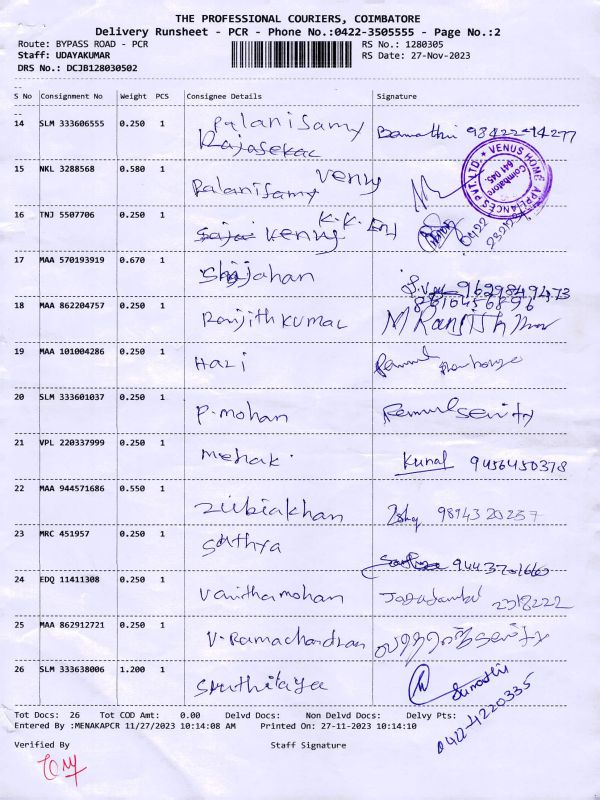 THE PROFESSIONAL COURIERS, COIMBATORE
Delivery Runsheet - PCR - Phone No.:0422-3505555 - Page No.:2
Route: BYPASS ROAD - PCR RS No.: 1280305
Staff: UDAYAKUMAR RS Date: 27-Nov-2023
DRS No.: DCJB128030502
S No Consignment No Weight PCS Consignee Details Signature
14 SLM 333606555 0.250 1 Palanisamy 98422-94277
Rajasekar
15 NKL 3288568 0.580 1 Palanisamy Venny
VENUS HOME APPLIANCES PVT. LTD. Coimbatore 641 045.
16 TNJ 5507706 0.250 1 Venny K.K. 0422
17 MAA 570193919 0.670 1 Shajahan 9629849473
8610456896
18 MAA 862204757 0.250 1 Ranjithkumar M Ranjith
19 MAA 101004286 0.250 1 Hari
20 SLM 333601037 0.250 1 P. mohan
21 VPL 220337999 0.250 1 Mehak. Kunal 9456450378
22 MAA 944571686 0.550 1 Zubiakhan 9894320257
23 MRC 451957 0.250 1 Sathya 9443701660
24 EDQ 11411308 0.250 1 Vanithamohan
25 MAA 862912721 0.250 1 V. Ramachandran
26 SLM 333638006 1.200 1 Sumathi
0422-4220335
Tot Docs: 26 Tot COD Amt: 0.00 Delvd Docs: Non Delvd Docs: Delvy Pts:
Entered By :MENAKAPCR 11/27/2023 10:14:08 AM Printed On: 27-11-2023 10:14:10
Verified By Staff Signature